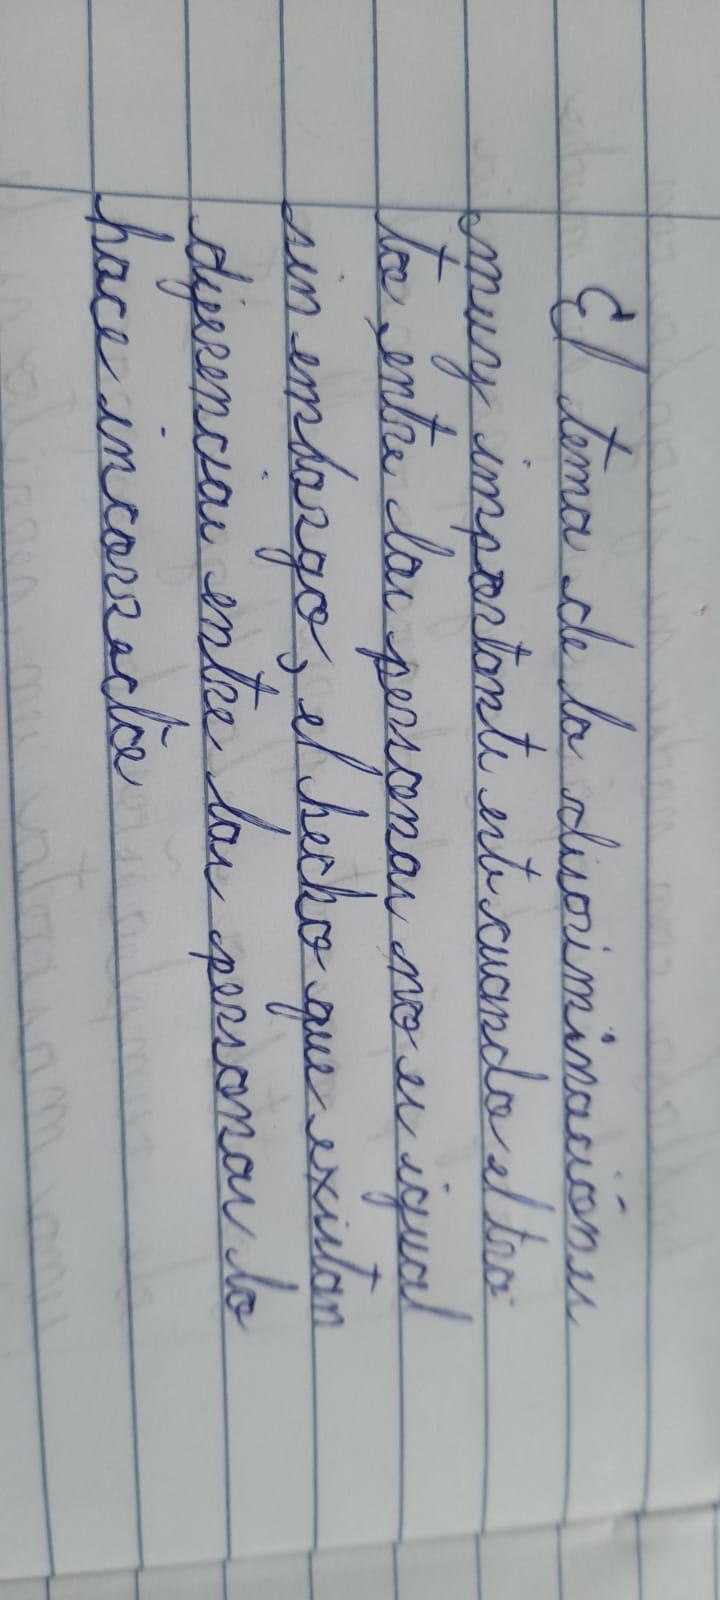 El tema de la discriminación es
muy importante est cuando el tra
to entre las personas no es igual
sin embargo, el hecho que existan
diferencias entre las personas lo
hace incorrecta